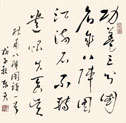 功盖三分国
名成八阵图
江流石不转
遗恨失吞吴
杜甫八阵图诗